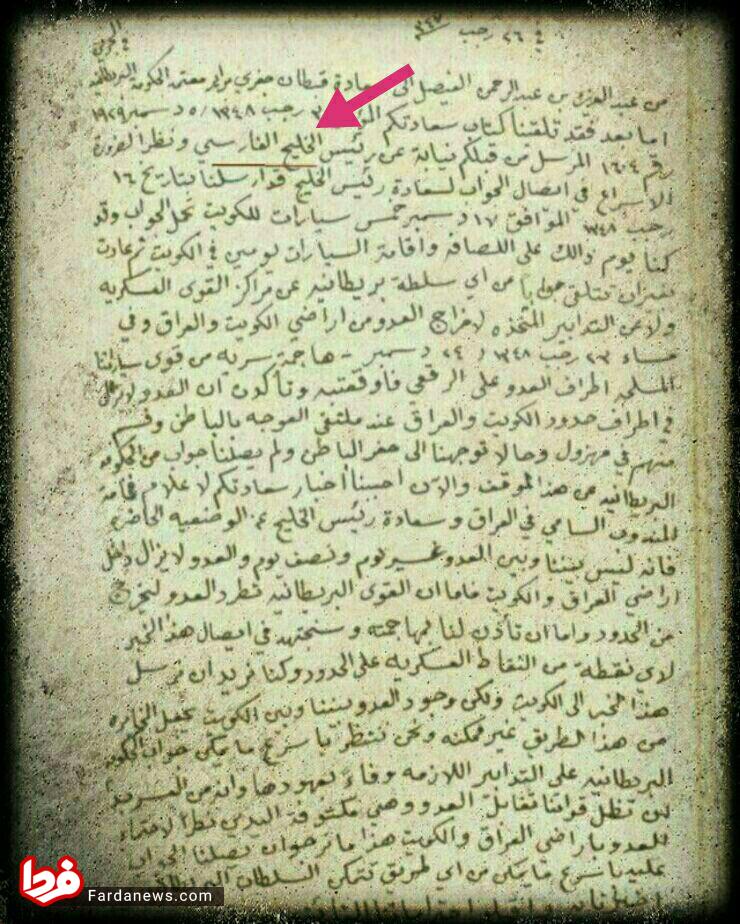 في ٢٦ رجب ٣٤٧
من عبد العزيز بن عبد الرحمن الفيصل الى سعادة قبطان معتمد الحكومة البريطانيه
اما بعد فقد تلقينا كتاب سعادتكم رجب ١٣٤٨ / ٥ دسمبر ١٩٢٩
رقم ١٦٠٤ المرسل من قبلكم نيابة عن رئيس الخليج الفارسي ونظرا لضرورة
الاسراع في ايصال الجواب لسعادة رئيس الخليج قد ارسلنا بتاريخ ١٦
رجب ١٣٤٨ الموافق ١٧ دسمبر خمس سيارات للكويت تحمل الجواب وقد
كنا يوم ذالك على اللصافه واقامة السيارات يومين في الكويت ثم عادت
من اي سلطة بريطانيه عن مراكز القوى العسكريه
ولا عن التدابير المتخذه لاخراج العدو من اراضي الكويت والعراق وفي
مساء ٢٣ رجب ١٣٤٨ و ٢٤ دسمبر - هاجمة سريه من قوى
اطراف العدو على الرقعي وتأكدن ان العدو لايزال
في اطراف حدود الكويت والعراق عند ملتقى العوجه بالباطن وقسم
منهم في مهزول وحالا توجهنا الى حفر الباطن ولم يصلنا جواب من الحكومه
البريطانيه عن هذا الموقف والان احببنا اخبار سعادتكم لاعلام فخامة
المندوب السامي في العراق وسعادة رئيس الخليج عن الوضعيه الحاضره
فانه ليس بيننا وبين العدو غير يوم ونصف يوم والعدو لايزال داخل
اراضي العراق والكويت فاما ان القوى البريطانيه تطرد العدو ليخرج
من الحدود واما ان تأذن لنا بمهاجمته وسنجتهد في ايصال هذا الخبر
لاي نقطة من النقاط العسكريه على الحدود وكنا نريد ان نرسل
هذا الخبر الى الكويت ولكن وجود العدو بيننا وبين الكويت يجعل المخابره
من هذا الطريق غير ممكنه ونحن ننتظر باسرع ما يمكن جواب الحكومه
البريطانيه على التدابير اللازمه وفاءً لعهودها وانه من
ان تظل قواتنا تقابل العدو وهي مكتوفة اليدين نظرا
باراضي العراق والكويت هذا ما نرجو ان يصلنا الجواب
عليه باسرع ما يمكن من اي طريق تتمكن السلطات
فردا
Fardanews.com